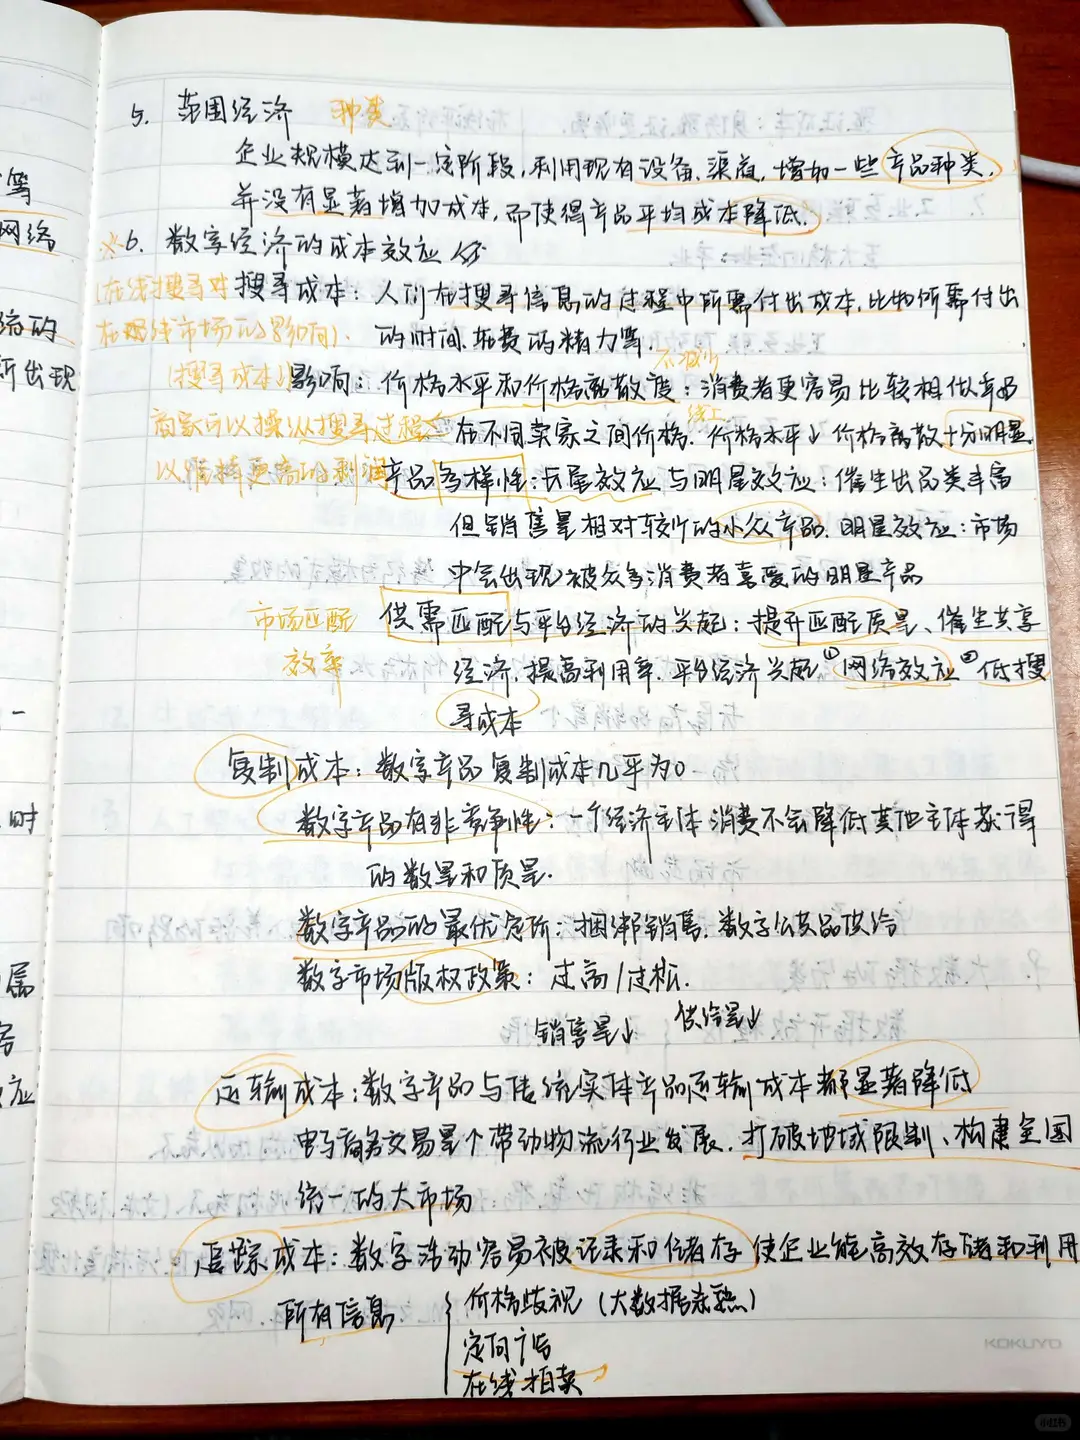 5. 范围经济 种类
企业规模达到一定阶段,利用现有设备、渠道,增加一些产品种类,
并没有显著增加成本,而使得产品平均成本降低.
※6. 数字经济的成本效应
(在线搜寻对 搜寻成本:人们在搜寻信息的过程中所需付出成本,比如所需付出
在线市场的影响). 的时间、耗费的精力等.
不减少
(搜寻成本↓) 影响:价格水平和价格离散度:消费者更容易比较相似产品
线上
商家可以操纵搜寻过程 在不同卖家之间价格. 价格水平↓ 价格离散十分明显
以维持更高的利润 产品多样性:长尾效应与明星效应:催生出品类丰富
但销售量相对较少的小众产品. 明星效应:市场
中会出现被众多消费者喜爱的明星产品
市场匹配 供需匹配与平台经济的兴起:提升匹配质量、催生共享
效率 经济,提高利用率. 平台经济兴起①网络效应②低搜
寻成本
复制成本:数字产品复制成本几乎为0
数字产品有非竞争性:一个经济主体消费不会降低其他主体获得
的数量和质量.
数字产品的最优定价:捆绑销售. 数字公共品供给
数字市场版权政策:过高/过松.
销售量↓ 供给量↓
运输成本:数字产品与传统实体产品运输成本都显著降低
电子商务交易量个带动物流行业发展. 打破地域限制、构建全国
统一的大市场
追踪成本:数字活动容易被记录和储存 使企业能高效存储和利用
所有信息 { 价格歧视 (大数据杀熟)
定向广告
在线拍卖
KOKUYO
小红书
等
网络
的
所出现
一
时
属
应